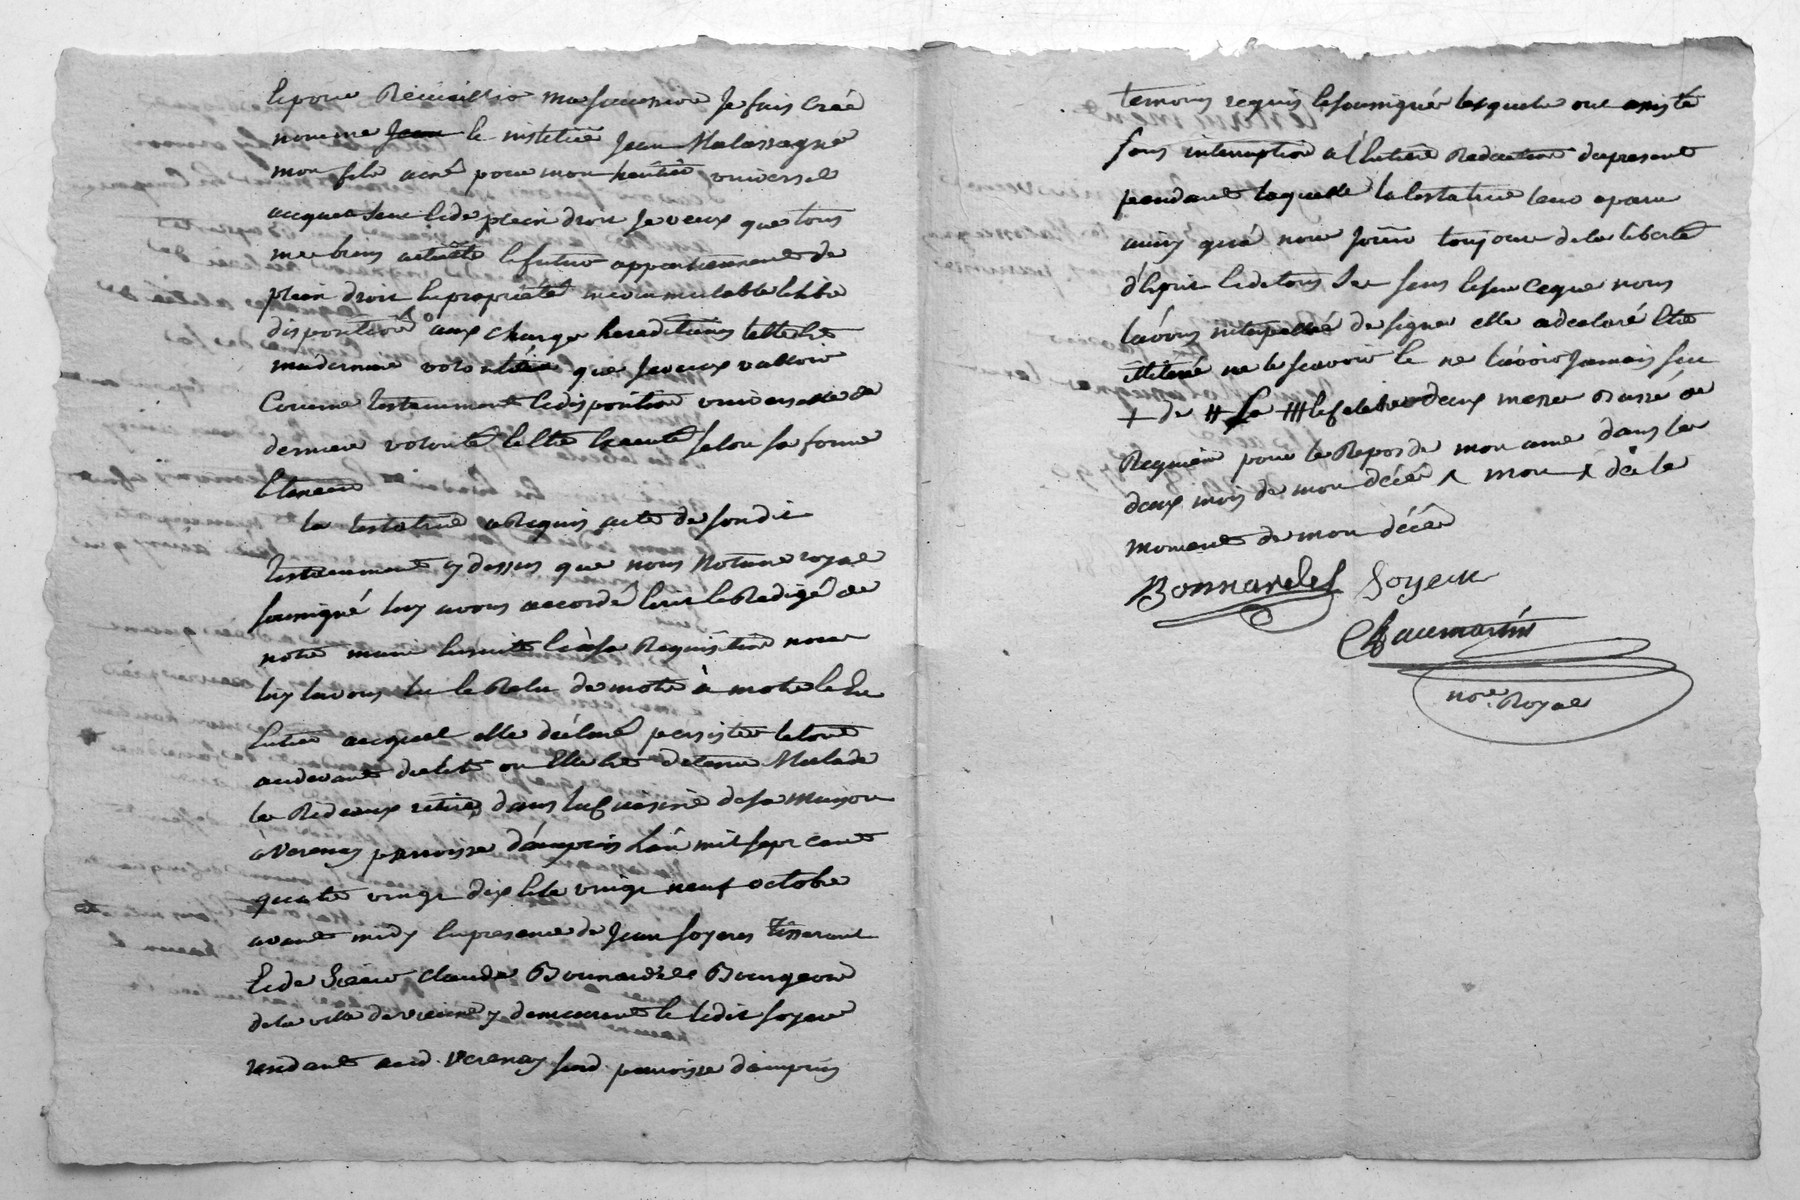 Et pour Recuеillir ma succession Je fais créé
nomme Jean et institüe Jean Malassagne
mon fils ainé pour mon héritier universel
auquel seul et de plein droit Je veux que tous
mes biens actuels et futurs appartiennent de
plein droit en propriété incommutable et libre
disposition aux charges hereditaires telle est
ma derniere volontée que Je veux valloir
Comme testament et disposition universelle de
derniere volonté et être Executé selon sa forme
Et teneur
la testatrice a Requis acte de son dit
testament cy dessus que nous Notaire royal
soussigné luy avons accordé Ecrit et Redigé de
notre main Ensuite et à sa Requisition nous
luy lavons lu et Relu de mots à mots et En
Entier auquel elle déclaré persister le tout
au devant du lit ou Elle est detenue Malade
les Rideaux retirés dans la Cuisine de sa maison
à Verenay paroisse d'ampuis L'an mil sept cent
quatre vingt dix et le vingt neuf octobre
avant midy En presence de Jean Soyere Tisserant
Et de Sieur Claude Bonnardel Bourgeois
de la ville de vienne y demeurant et ledit Soyere
residant aud. Verenay susd. paroisse d'ampuis
temoins requis et soussignés lesquels ont assisté
sans interruption a l'Entiere Redaction du present
pendant laquelle la testatrice leur a paru
ainsy qu'à nous Joüir toujours de la liberté
d'Esprit et de tous Ses sens Et sur ce que nous
lavons interpellé de signer elle a declaré Etre
illiteré ne le scavoir et ne lavoir Jamais sçu
+ de # La ### et celebrer deux messes Basse de
Requiem pour le Repos de mon ame dans les
deux mois de mon décés ^ mon ^ dès le
moment de mon décés
Bonnardel Soyere
Chaumartin
nore. Royal